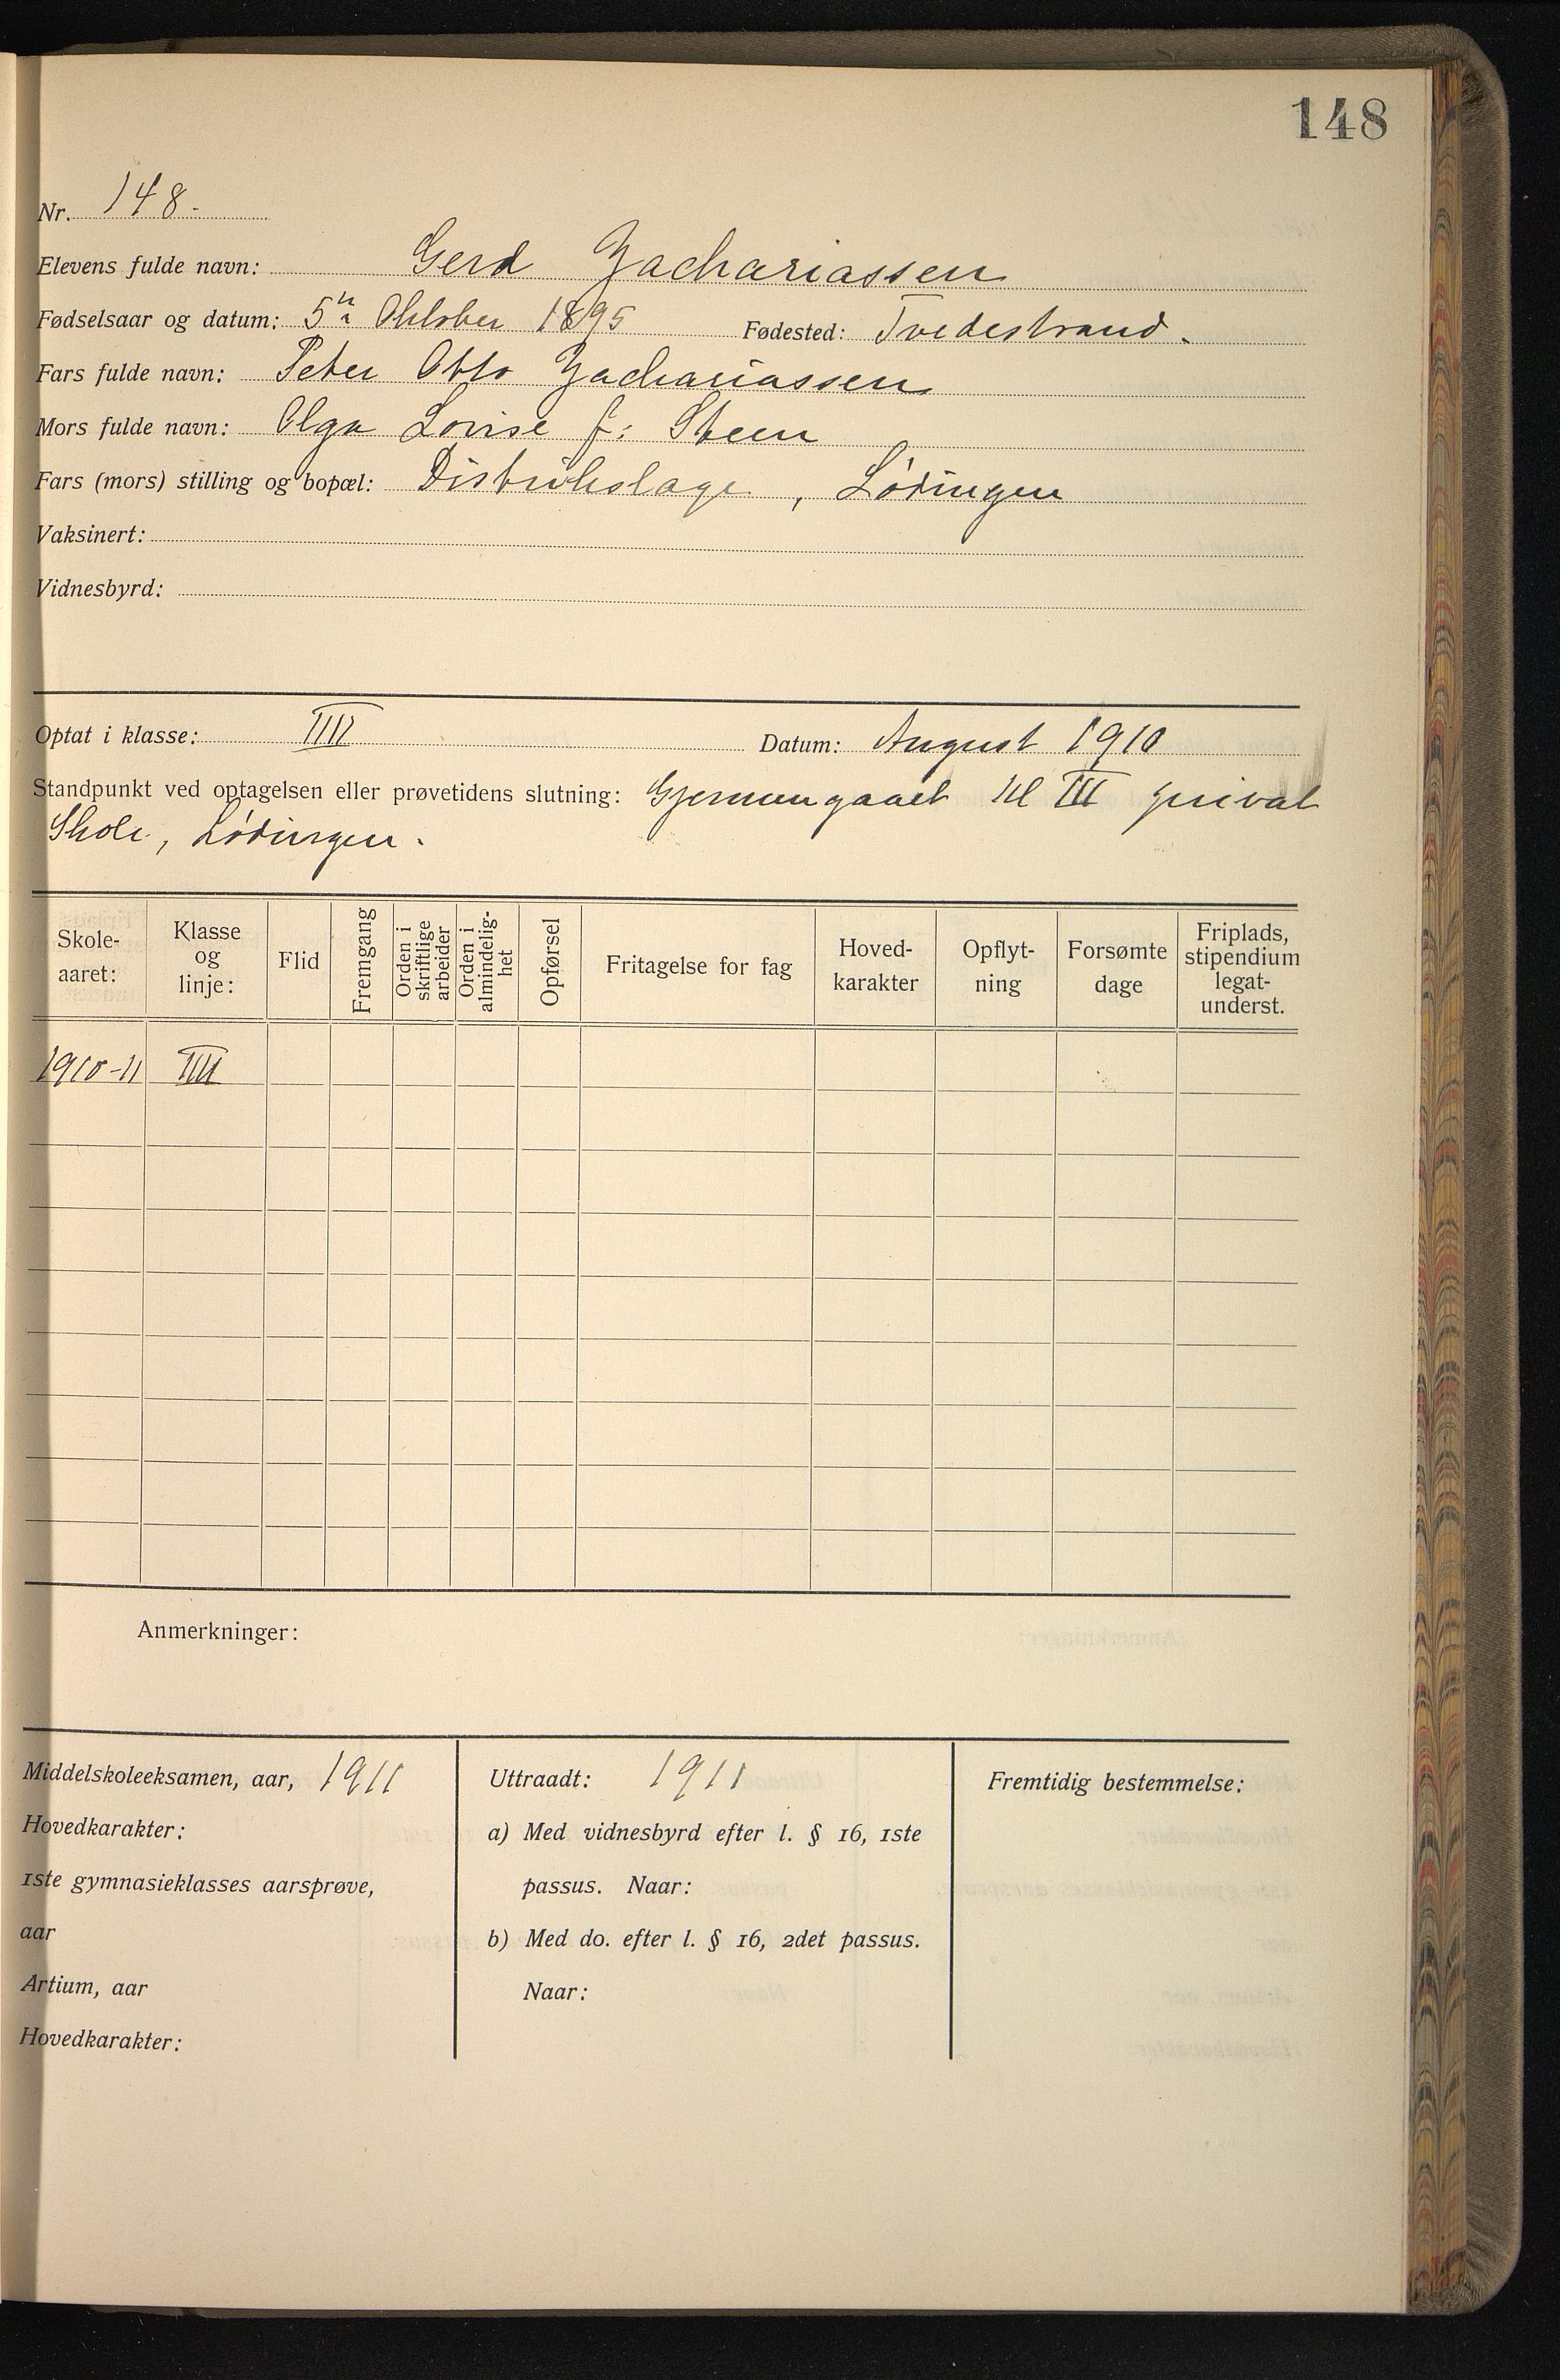 148
Nr. 148.
Elevens fulde navn: Gerd Zachariassen
Fødselsaar og datum: 5te Oktober 1895 Fødested: Tvedestrand.
Fars fulde navn: Peter Otto Zachariassen
Mors fulde navn: Olga Lovise f: Steen
Fars (mors) stilling og bopæl: Distriktslæge, Lødingen
Vaksinert:
Vidnesbyrd:
Optat i klasse: IIII Datum: August 1910
Standpunkt ved optagelsen eller prøvetidens slutning: Gjennemgaaet Kl III privat
Skole, Lødingen.
Skole-aaret: Klasse og linje: Flid Fremgang Orden i skriftlige arbeider Orden i almindelig-het Opførsel Fritagelse for fag Hoved-karakter Opflyt-ning Forsømte dage Friplads, stipendium legat-underst.
1910-11 IIII
Anmerkninger:
Middelskoleeksamen, aar, 1911
Hovedkarakter:
1ste gymnasieklasses aarsprøve,
aar
Artium, aar
Hovedkarakter:
Uttraadt: 1911
a) Med vidnesbyrd efter l. § 16, 1ste
passus. Naar:
b) Med do. efter l. § 16, 2det passus.
Naar:
Fremtidig bestemmelse: